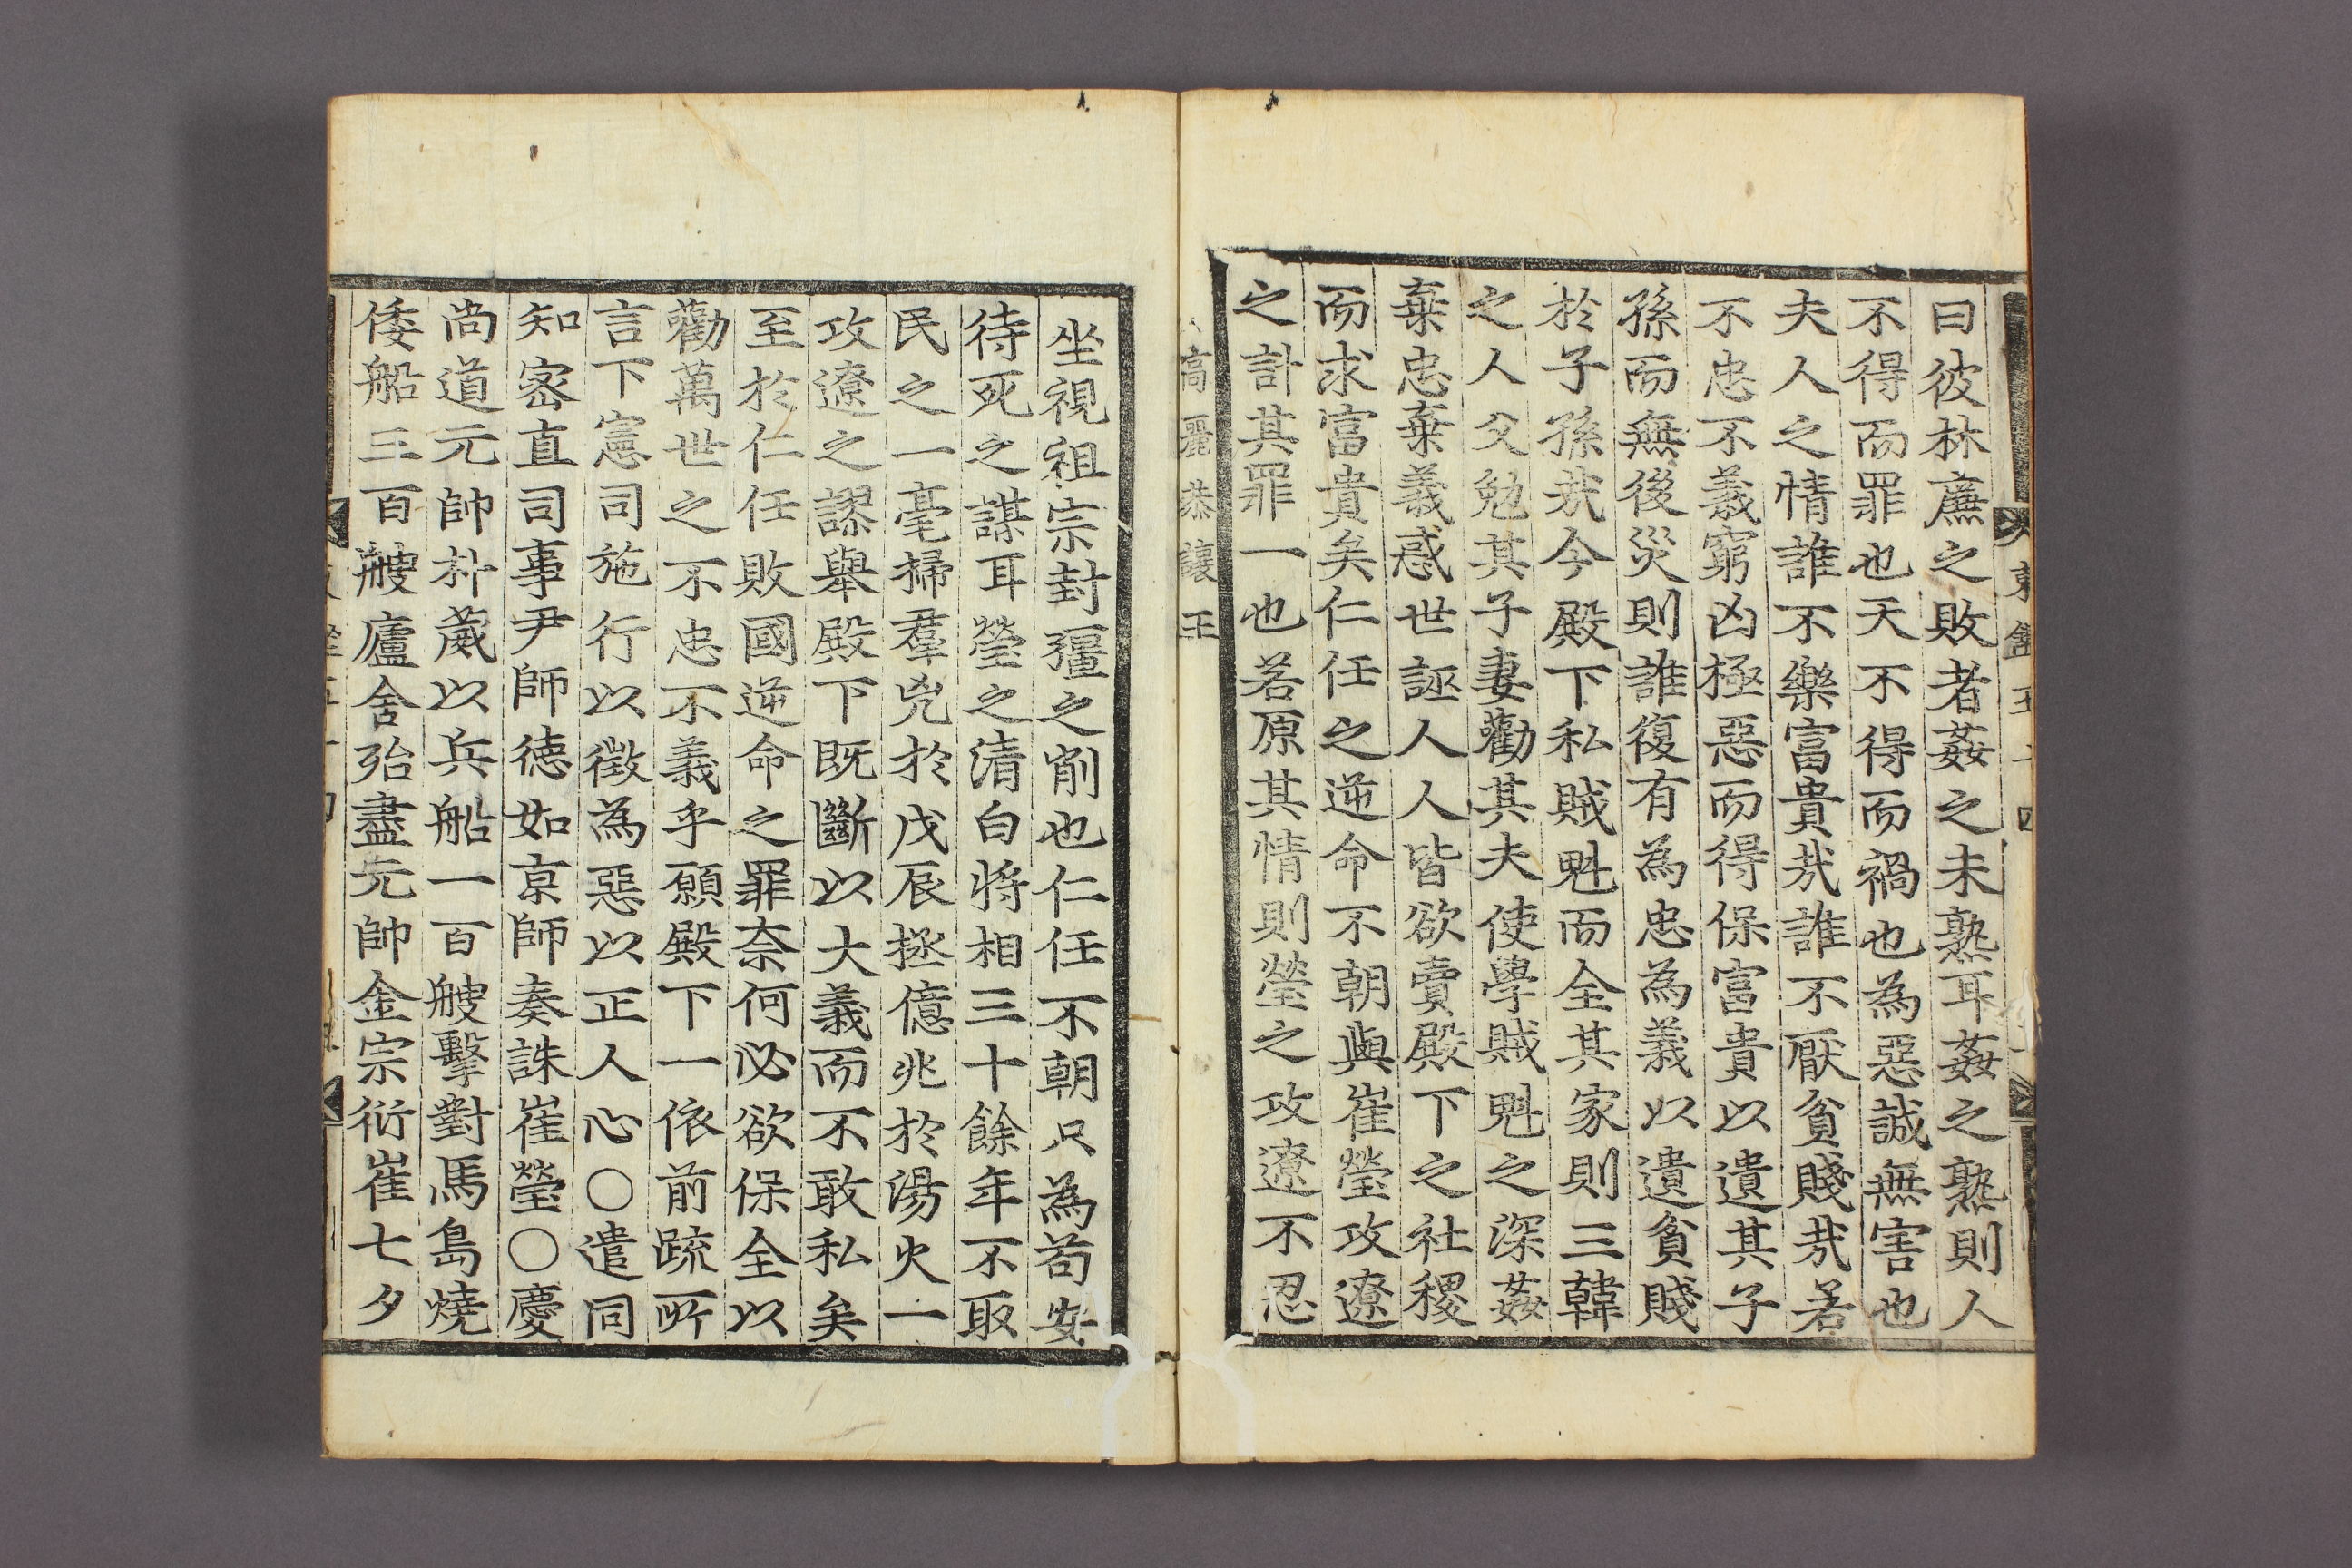 曰彼林廉之敗者姦之未熟耳姦之熟則人
不得而罪也天不得而禍也為惡誠無害也
夫人之情誰不樂富貴㢤誰不厭貧賤㢤若
不忠不義窮凶極惡而得保富貴以遺其子
孫而無後災則誰復有為忠為義以遺貧賤
於子孫㢤今殿下私賊魁而全其家則三韓
之人父勉其子妻勸其夫使學賊魁之深姦
棄忠棄義惑世誣人人皆欲賣殿下之社稷
而求富貴矣仁任之逆命不朝與崔瑩攻遼
之計其罪一也若原其情則瑩之攻遼不忍
高麗恭讓王
坐視祖宗封疆之削也仁任不朝只為苟安
待死之謀耳瑩之清白將相三十餘年不取
民之一毫掃羣兇於戊辰拯億兆於湯火一
攻遼之謬舉殿下既斷以大義而不敢私矣
至於仁任敗國逆命之罪奈何必欲保全以
勸萬世之不忠不義乎願殿下一依前疏所
言下憲司施行以徵為惡以正人心○遣同
知密直司事尹師德如京師奏誅崔瑩○慶
尚道元帥朴葳以兵船一百艘擊對馬島燒
倭船三百艘廬舍殆盡元帥金宗衍崔七夕